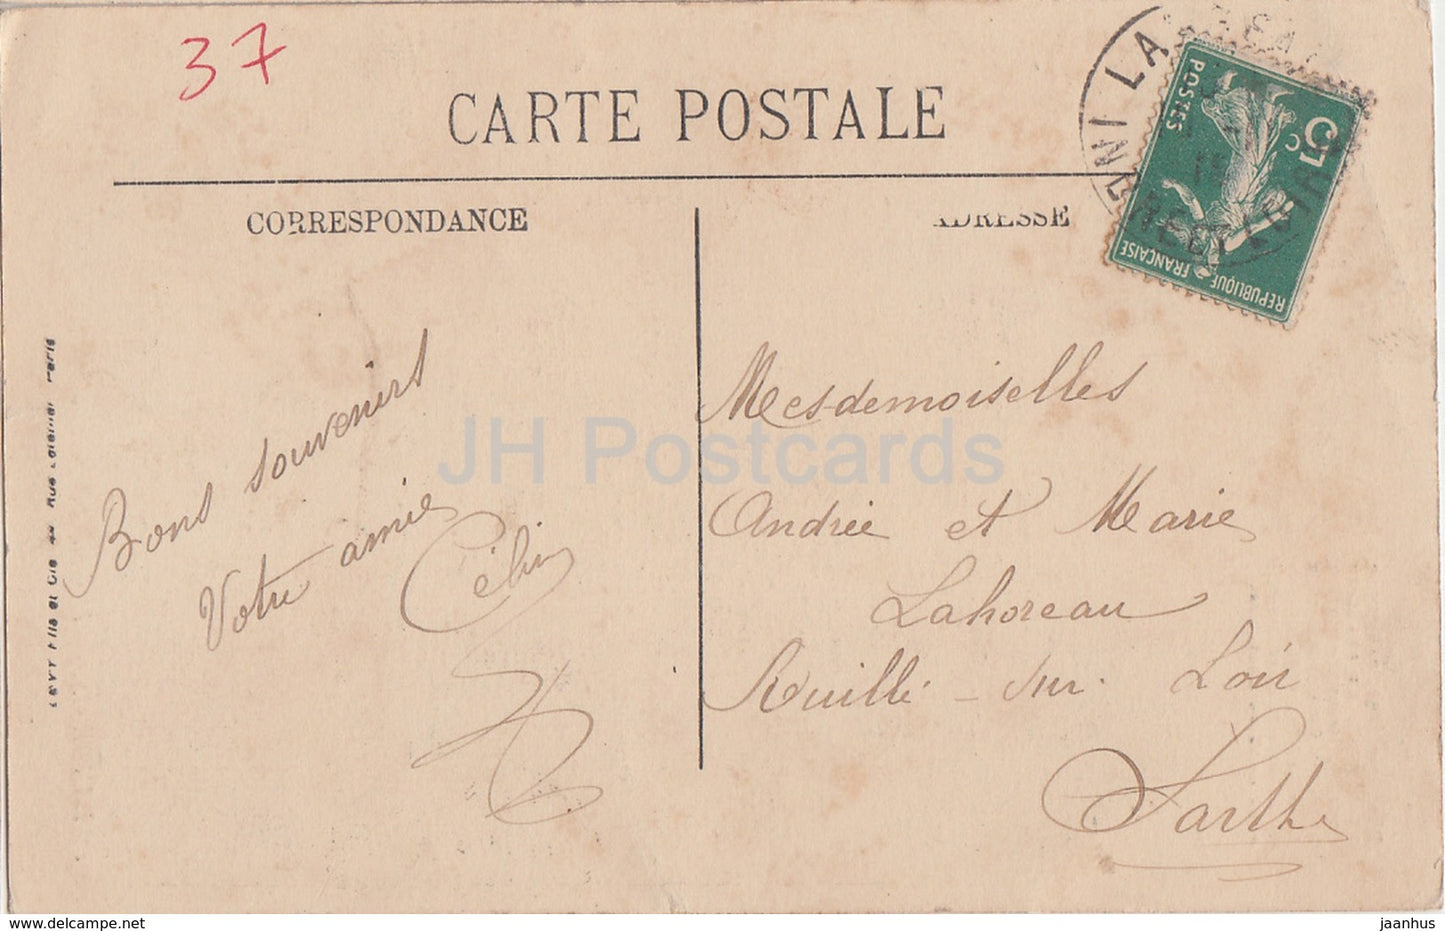 37
CARTE POSTALE
CORRESPONDANCE
ADRESSE
POSTES
5c
REPUBLIQUE FRANÇAISE
INDRE ET LOIRE
Bons souvenirs
Votre amie
Mesdemoiselles
Andrée et Marie
Lahoreau
Ruillé-sur-Loir
Sarthe
LEVY Fils et Cie 44 Rue Letellier Paris
JH Postcards
www.delcampe.net
jaanhus